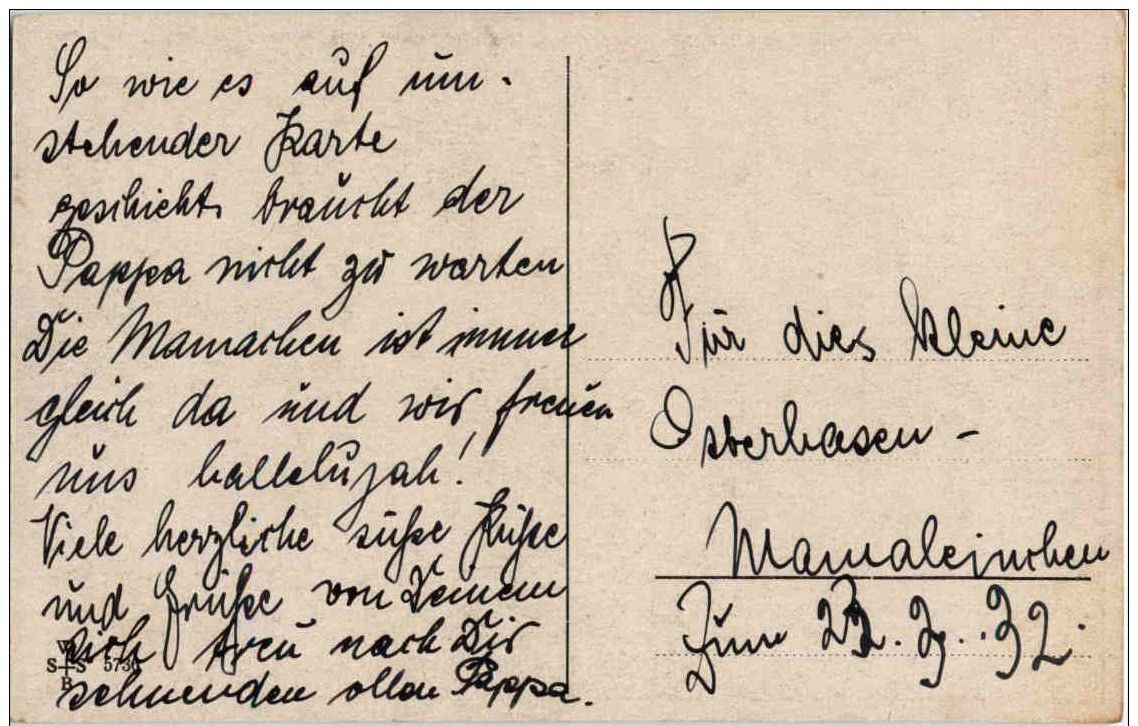 So wie es auf um-
stehender Karte
geschieht, braucht der
Pappa nicht zu warten
Die Mamachen ist immer
gleich da und wir freuen
uns hallelujah!
Viele herzliche süße Küße
und Grüße von Deinem
sich treu nach Dir
sehnenden ollen Pappa.
S S 573
B
Für dies kleine
Osterhasen-
Mamaleinchen
Zum 23. 3. 32.